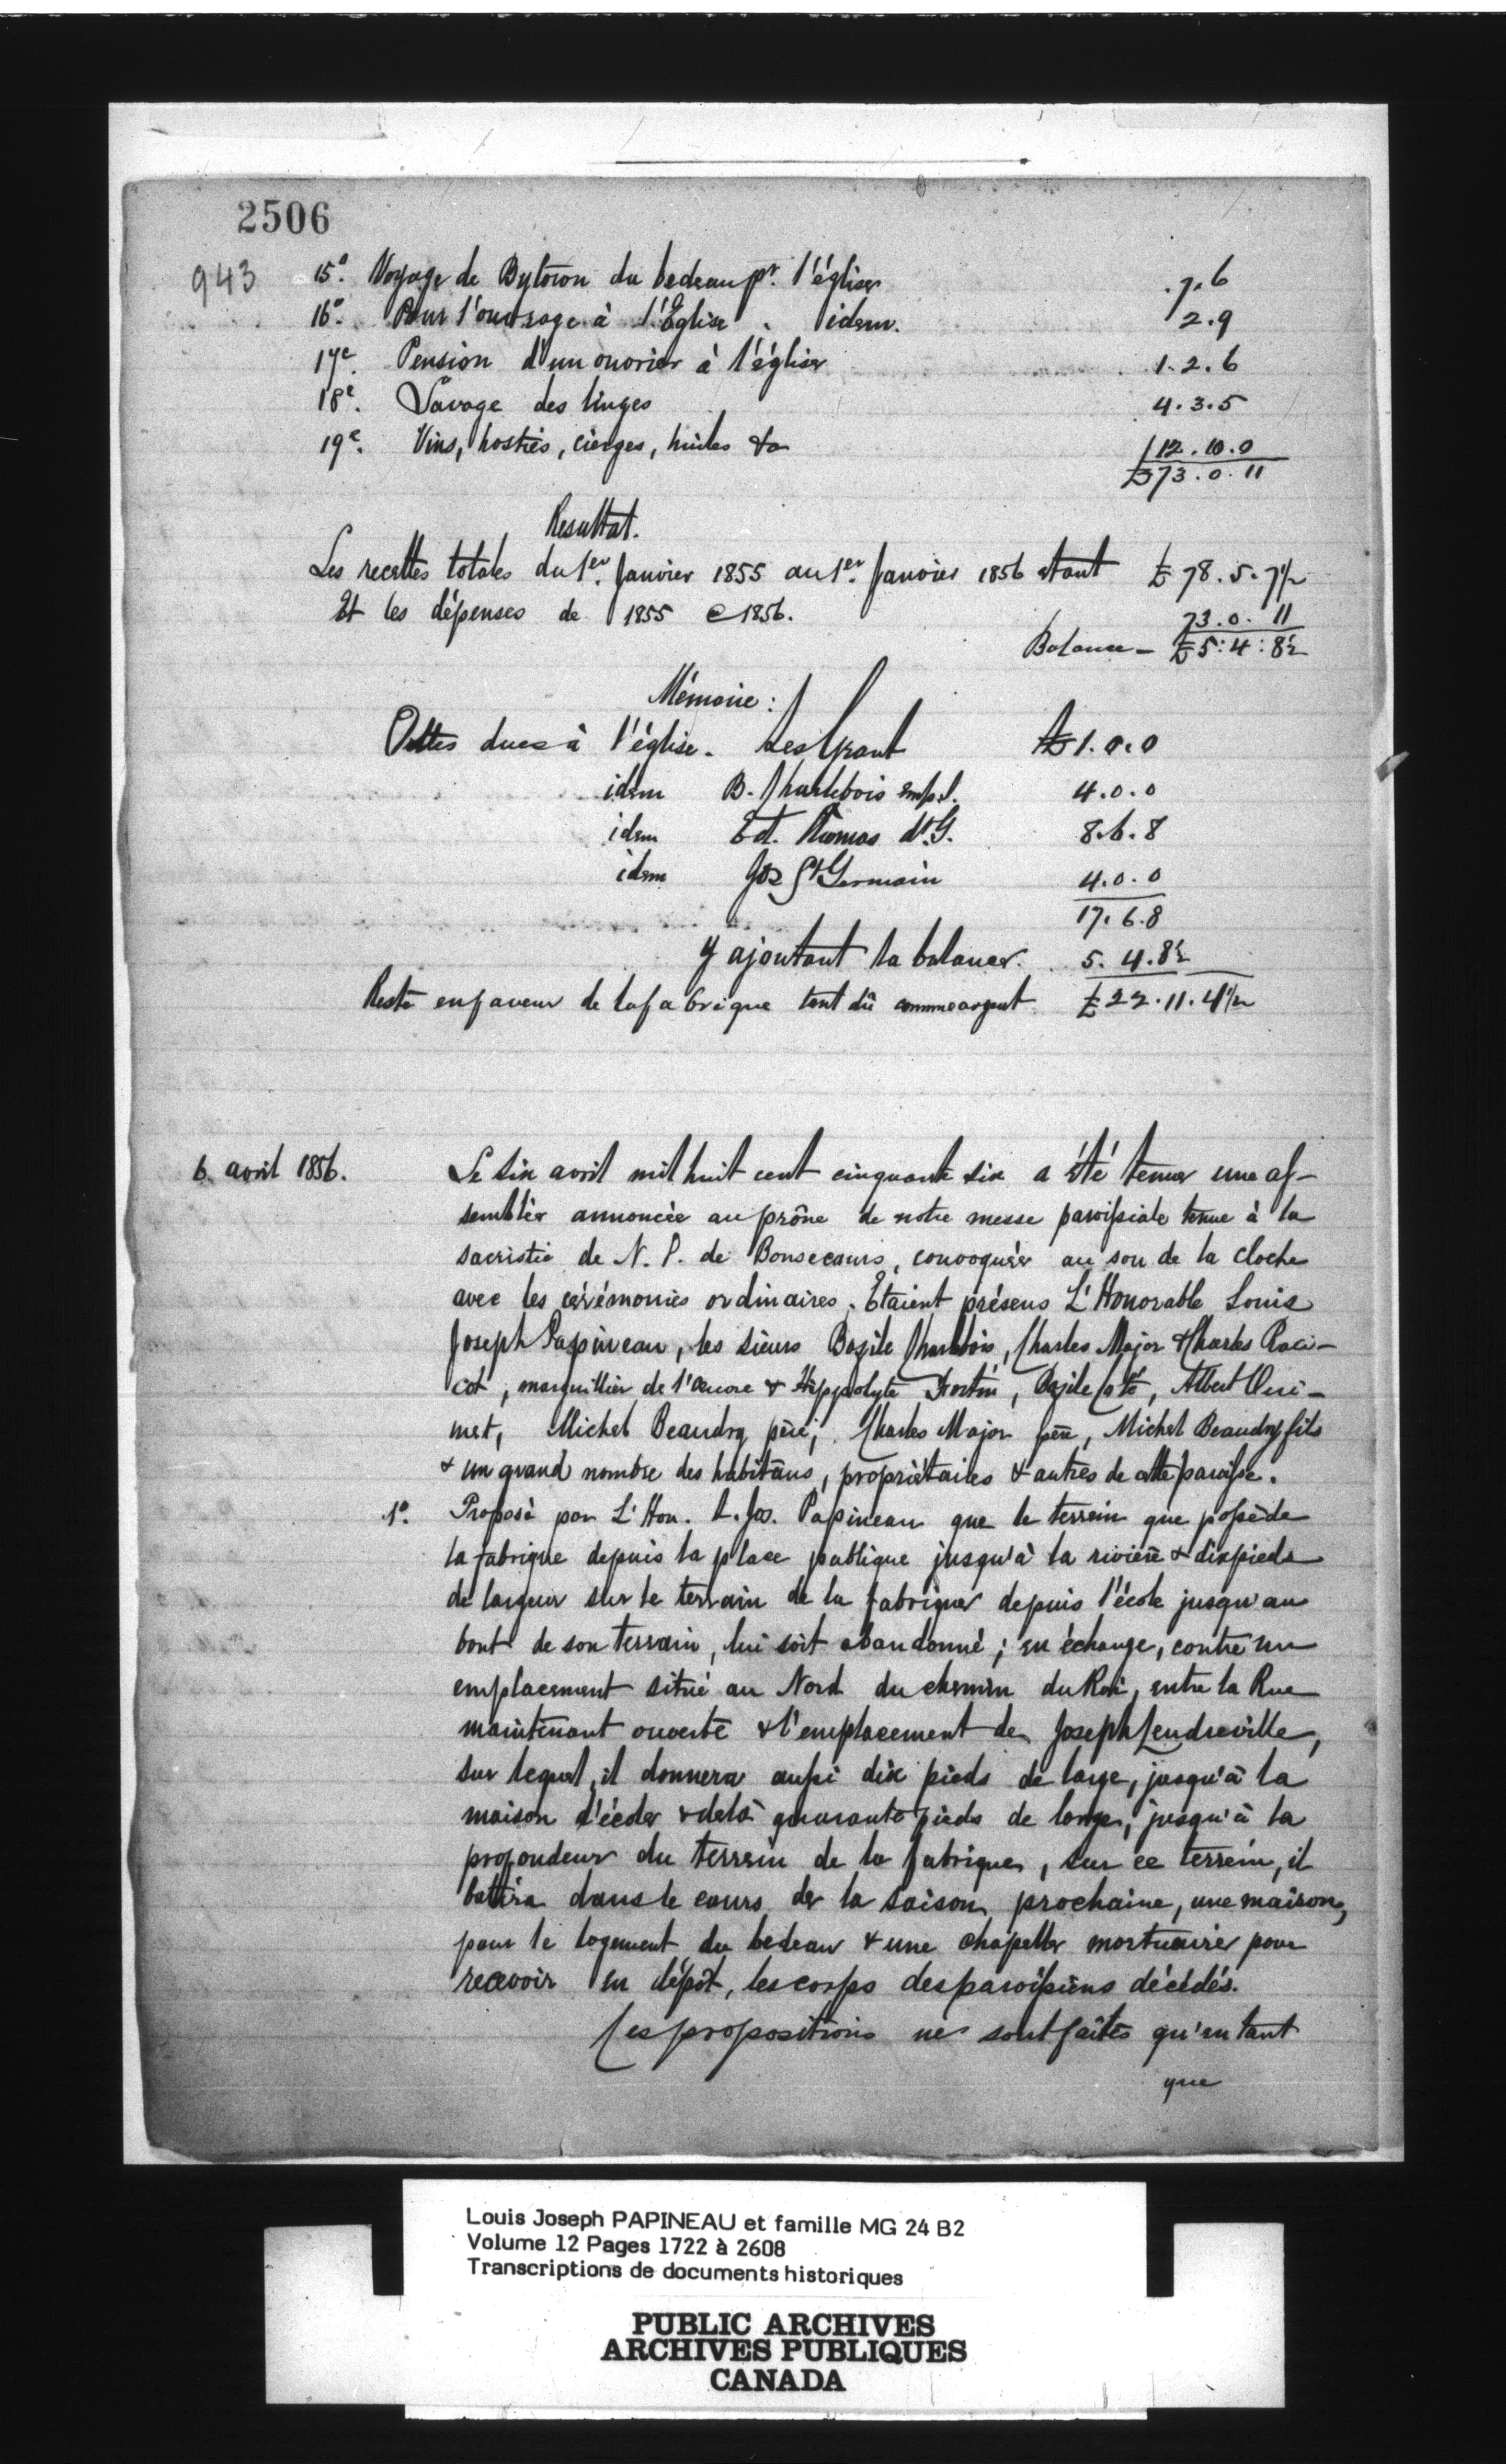 2506
943
15º. Voyage de Bytown du bedeau pr. l'église .7.6
16º. Pour l'ouvrage à l'Eglise. idem. 2.9
17e. Pension d'un ouvrier à l'église 1.2.6
18e. Lavage des linges 4.3.5
19e. Vins, hosties, cierges, huiles &a 12.10.0
£73.0.11
Resultat.
Les recettes totales du 1er. Janvier 1855 au 1er. Janvier 1856 etant £78.5.7½
Et les dépenses de 1855 @ 1856. 73.0.11
Balance - £5:4:8½
Mémoire:
Dettes dues à l'église. Les Grant £1.0.0
idem B. Charlebois 4.0.0
idem Ed. Thomas dt. G. 8.6.8
idem Jos St Germain 4.0.0
17.6.8
y ajoutant la balance. 5.4.8½
Reste en faveur de la fabrique tant dû comme argent £22.11.4½
6. avril 1856.
Le six avril mil huit cent cinquante six a été tenue une as-
semblée annoncée au prône de notre messe paroissiale tenue à la
sacristie de N. P. de Bonsecours, convoquée au son de la cloche
avec les cérémonies ordinaires. Etaient présens L'Honorable Louis
Joseph Papineau, les sieurs Bazile Charlebois, Charles Major & Charles Raci-
cot, marguillier de l'œuvre & Hyppolyte Fortin, Bazile Coté, Albert Oui-
met, Michel Beaudry père, Charles Major père, Michel Beaudry fils
& un grand nombre des habitans, propriétaires & autres de cette paroisse.
1º. Proposé par L'Hon. L. Jos. Papineau que le terrein que possède
la fabrique depuis la place publique jusqu'à la rivière & dix pieds
de largeur sur le terrain de la fabrique depuis l'école jusqu'au
bout de son terrain, lui soit abandonné; en échange, contre un
emplacement situé au Nord du chemin du Roi, entre la Rue
maintenant ouverte & l'emplacement de Joseph Lendreville,
sur lequel, il donnera aussi dix pieds de large, jusqu'à la
maison d'école & delà quarante pieds de large, jusqu'à la
profondeur du terrein de la fabrique, sur ce terrein, il
battira dans le cours de la saison prochaine, une maison,
pour le logement du bedeau & une chapelle mortuaire pour
recevoir en dépôt, les corps des paroissiens décédés.
Ces propositions ne sont faites qu'en tant
que
Louis Joseph PAPINEAU et famille MG 24 B2
Volume 12 Pages 1722 à 2608
Transcriptions de documents historiques
PUBLIC ARCHIVES
ARCHIVES PUBLIQUES
CANADA